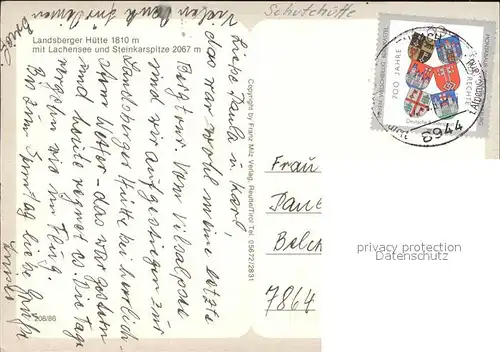 Landsberger Hütte 1810 m
mit Lachensee und Steinkarspitze 2067 m
Schutzhütte
Vielen Dank für deinen
Brief
Liebe Paula u. Karl!
das war wohl meine letzte
Bergtour. Vom Vilsalpsee
sind wir aufgestiegen zur
Landsberger Hütte bei herrlich-
stem Wetter - das war gestern
und heute regnet es. Die Tage
vergehen wie im Flug.
Bis zum Sonntag liebe Grüße
208/86
Copyright by Franz Milz Verlag, Reutte/Tirol Tel. 05672/2831
700 JAHRE
8944
Frau
Paul
Belch
7864
privacy protection
VDMedien24.de